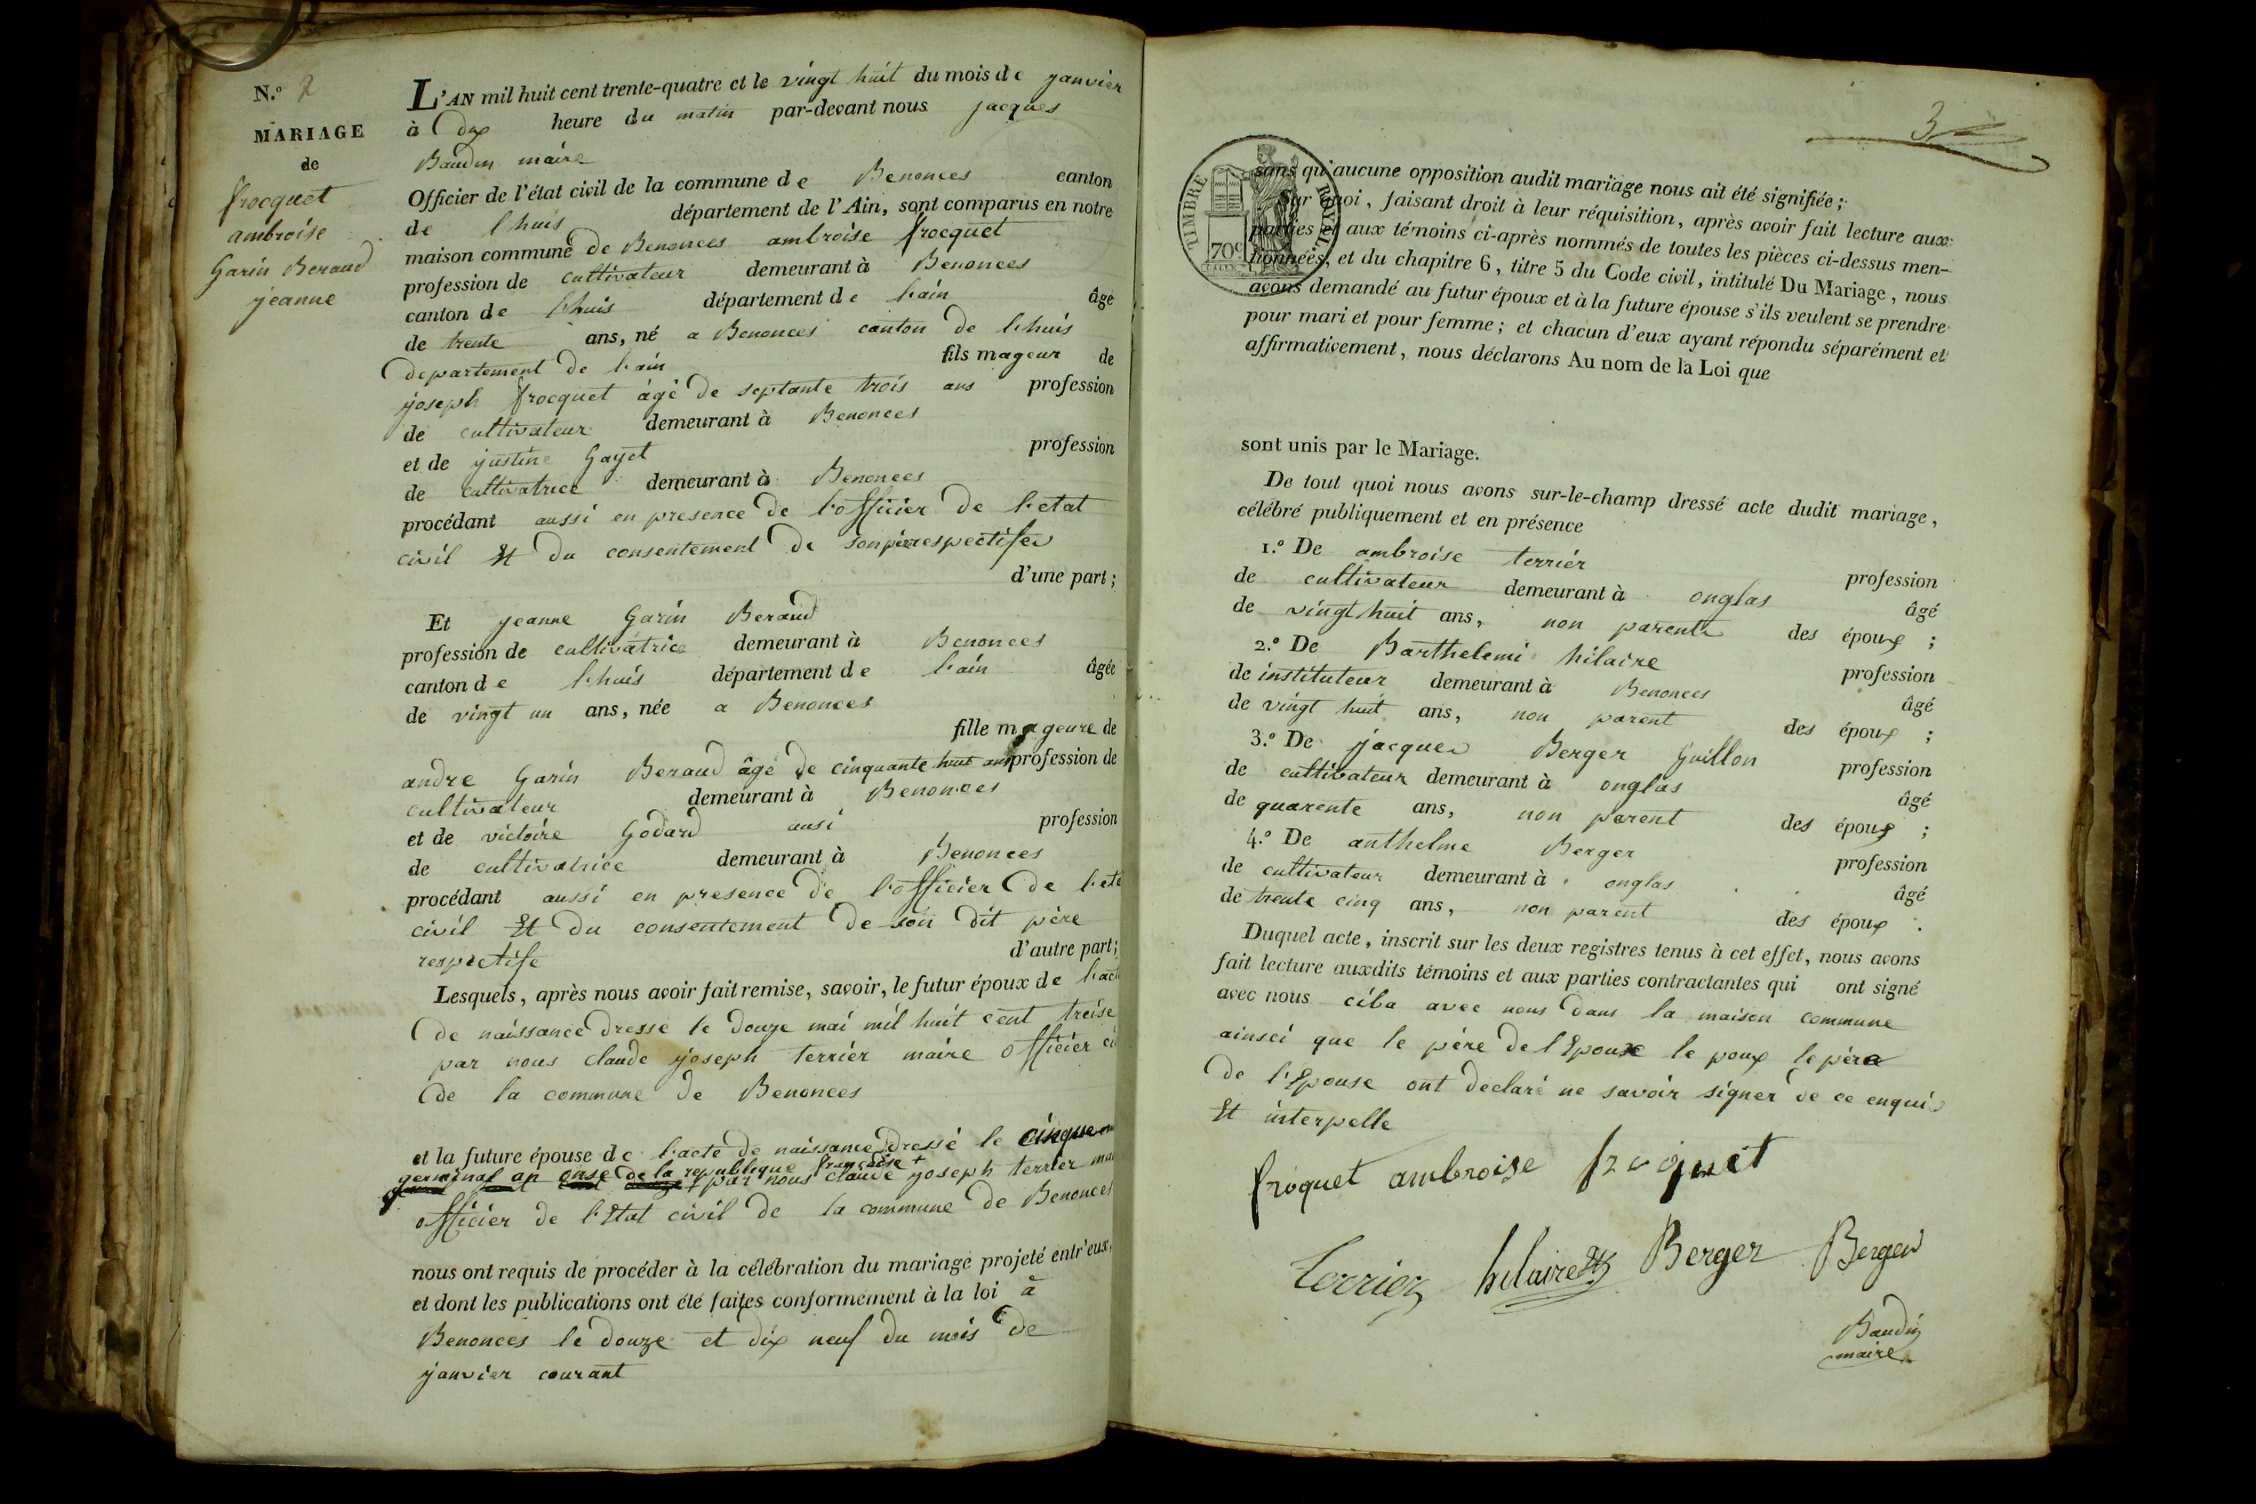 N.º 2
MARIAGE
de
frocquet
ambroise
Garin Beraud
jeanne
L'AN mil huit cent trente-quatre et le vingt huit du mois de janvier
à dix heure du matin par-devant nous jacques
Baudin maire
Officier de l'état civil de la commune de Benonces canton
de lhuis département de l'Ain, sont comparus en notre
maison commune de Benonces ambroise frocquet
profession de cultivateur demeurant à Benonces
canton de lhuis département de lain âgé
de trente ans, né a Benonces canton de lhuis
departement de lain fils mageur de
joseph frocquet âgé de septante trois ans profession
de cultivateur demeurant à Benonces
et de justine Gayet profession
de cultivatrice demeurant à Benonces
procédant aussi en presence de l'officier de l'etat
civil Et du consentement de son père respectife
d'une part ;
Et jeanne Garin Beraud
profession de cultivatrice demeurant à Benonces
canton de lhuis département de lain âgée
de vingt un ans, née a Benonces
fille mageure de
andre Garin Beraud âgé de cinquante huit ans profession de
cultivateur demeurant à Benonces
et de victoire Godard ausi profession
de cultivatrice demeurant à Benonces
procédant aussi en presence de l'officier de l'eta
civil Et du consentement de son dit père
respectife d'autre part ;
Lesquels, après nous avoir fait remise, savoir, le futur époux de l'acte
de naissance dressé le douze mai mil huit cent treise
par nous claude joseph terrier maire officier ci
de la commune de Benonces
et la future épouse de l'acte de naissance dressé le cinque
germinal an onse de la republique francaise +
+ par nous claude joseph terrier mai
officier de l'Etat civil de la commune de Benonces
nous ont requis de procéder à la célébration du mariage projeté entr'eux,
et dont les publications ont été faites conformement à la loi à
Benonces le douze et dix neuf du mois de
janvier courant
3
TIMBRE ROYAL
70c
sans qu'aucune opposition audit mariage nous ait été signifiée ;
Sur quoi, faisant droit à leur réquisition, après avoir fait lecture aux
parties et aux témoins ci-après nommés de toutes les pièces ci-dessus men-
tionnées, et du chapitre 6, titre 5 du Code civil, intitulé Du Mariage, nous
avons demandé au futur époux et à la future épouse s'ils veulent se prendre
pour mari et pour femme ; et chacun d'eux ayant répondu séparément et
affirmativement, nous déclarons Au nom de la Loi que
sont unis par le Mariage.
De tout quoi nous avons sur-le-champ dressé acte dudit mariage,
célébré publiquement et en présence
1.º De ambroise terrier profession
de cultivateur demeurant à onglas âgé
de vingt huit ans, non parent des époux ;
2.º De Barthelemi hilaire profession
de instituteur demeurant à Benonces âgé
de vingt huit ans, non parent des époux ;
3.º De jacques Berger Guillon profession
de cultivateur demeurant à onglas âgé
de quarente ans, non parent des époux ;
4.º De anthelme Berger profession
de cultivateur demeurant à onglas âgé
de trente cinq ans, non parent des époux .
Duquel acte, inscrit sur les deux registres tenus à cet effet, nous avons
fait lecture auxdits témoins et aux parties contractantes qui ont signé
avec nous ciba avec nous dans la maison commune
ainsci que le père de l'Epoux le poux le père
de l'Epouse ont declaré ne savoir signer de ce enquis
Et interpelle
froquet ambroise froquet
terrier hilaire Berger Berger
Baudin
maire